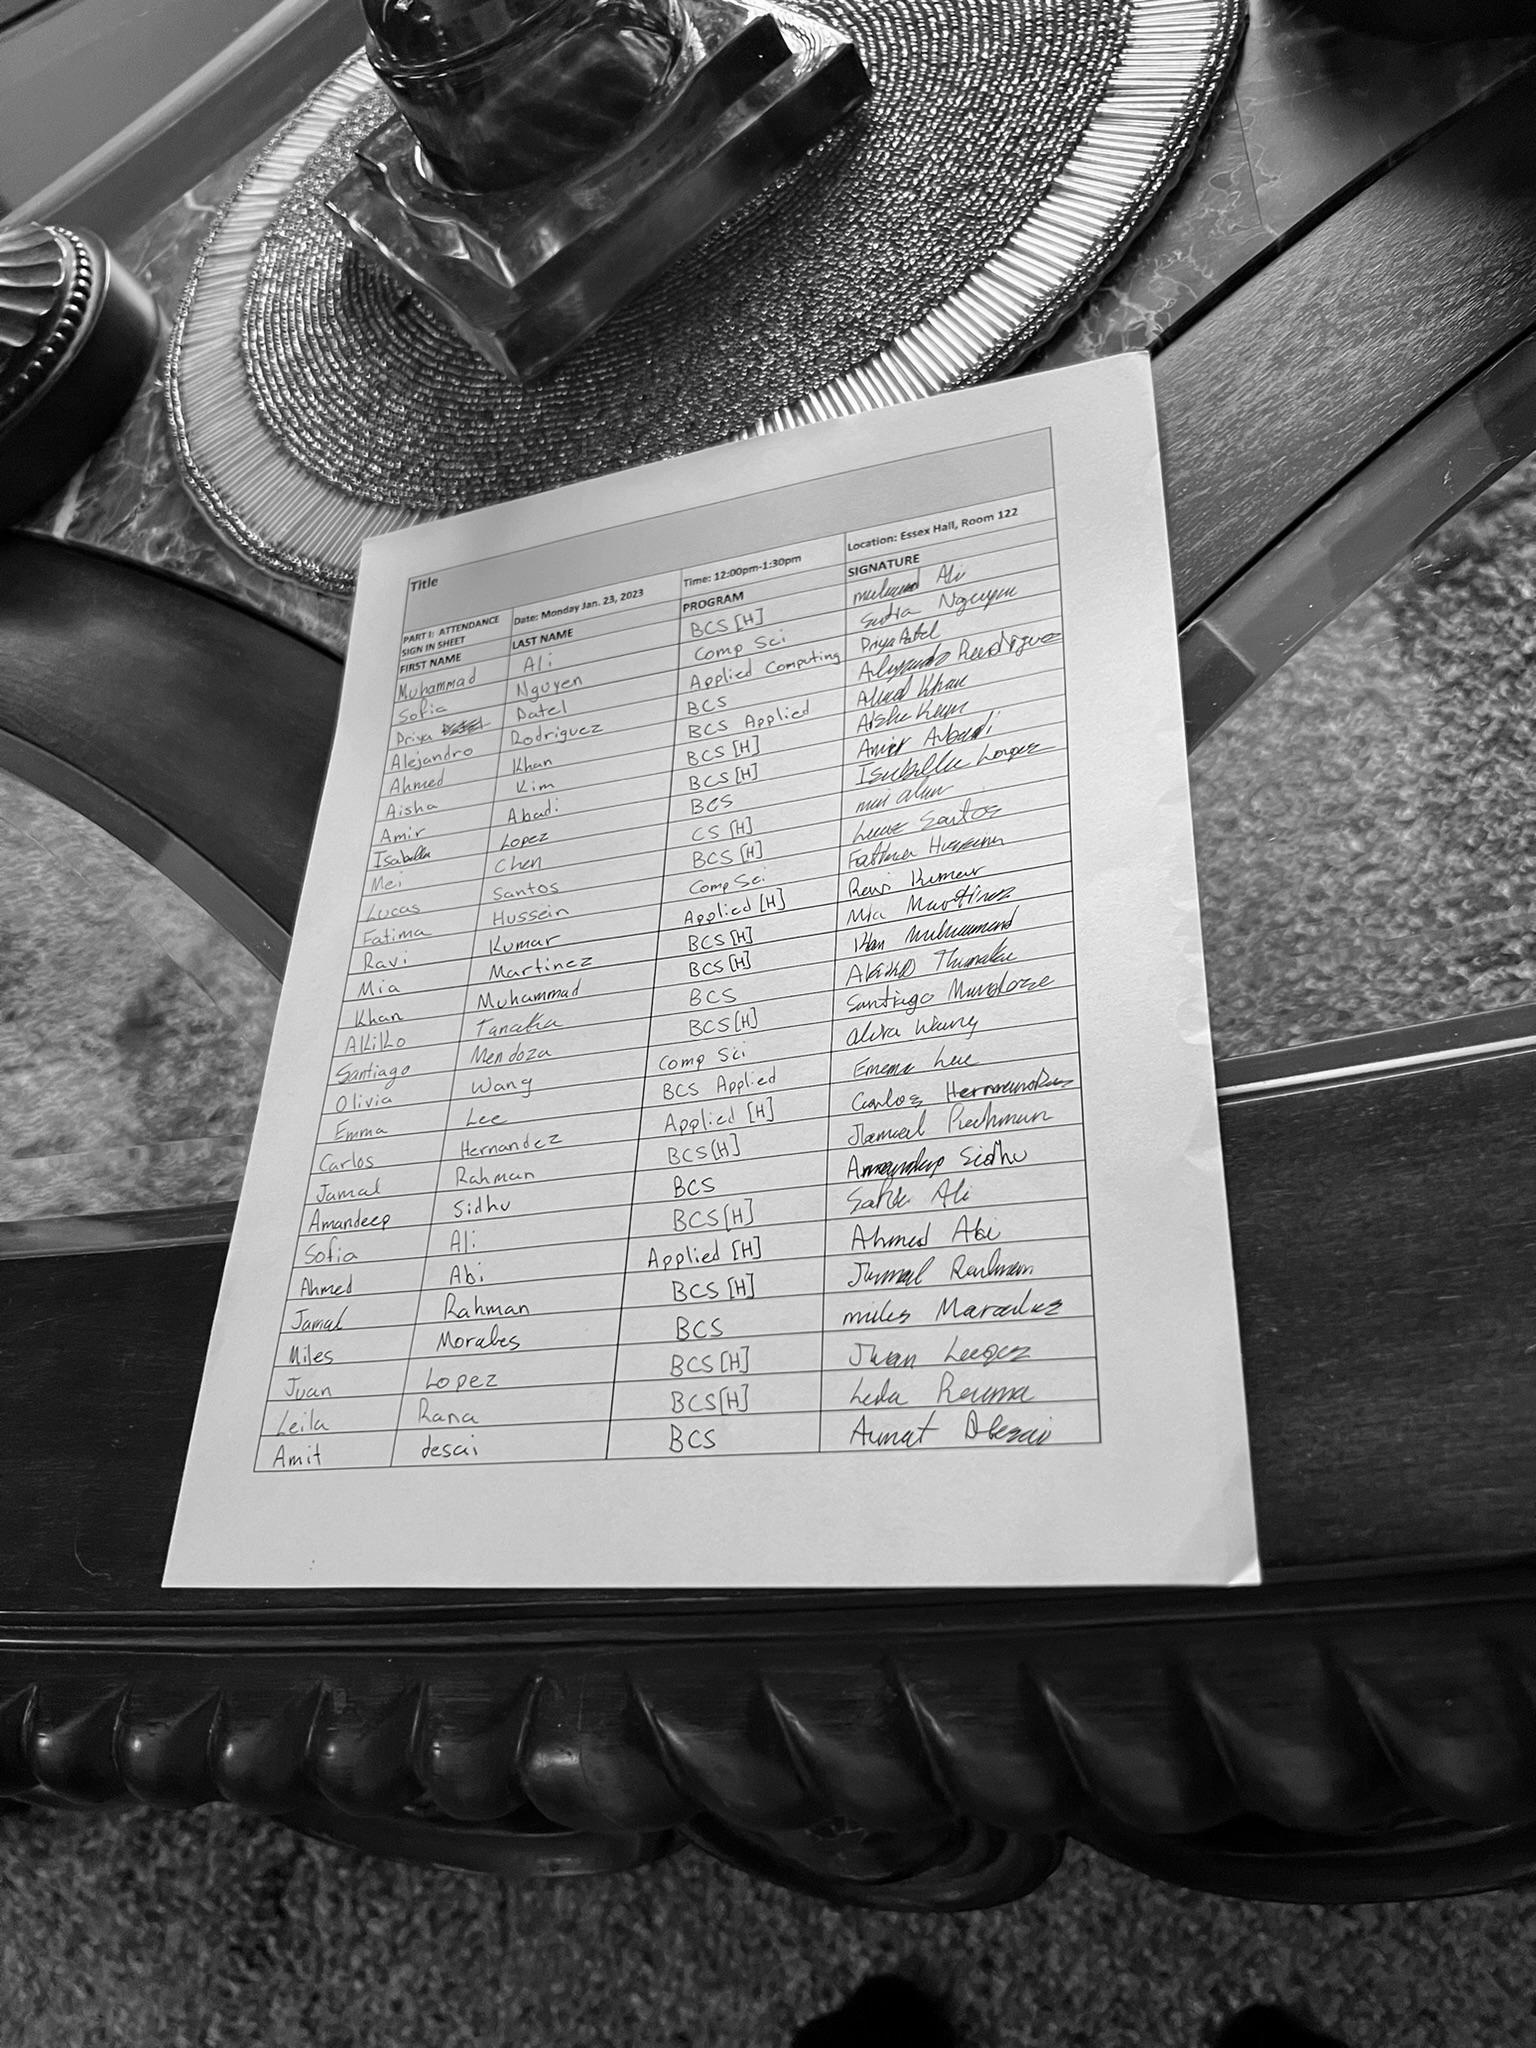 Title
PART I: ATTENDANCE SIGN IN SHEET Date: Monday Jan. 23, 2023 Time: 12:00pm-1:30pm Location: Essex Hall, Room 122
FIRST NAME LAST NAME PROGRAM SIGNATURE
Muhammad Ali BCS [H] Ali
Sofia Nguyen Comp Sci Nguyen
Priya Patel Applied Computing Priya Patel
Alejandro Rodriguez BCS Alejandro Rodriguez
Ahmed Khan BCS Applied Ahmed Khan
Aisha Kim BCS [H] Aisha Kim
Amir Abadi BCS [H] Amir Abadi
Isabella Lopez BCS Isabella Lopez
Mei Chen CS [H] mei
Lucas Santos BCS [H] Lucas Santos
Fatima Hussein Comp Sci Fatima Hussein
Ravi Kumar Applied [H] Ravi Kumar
Mia Martinez BCS [H] Mia Martinez
Khan Muhammad BCS [H] Khan Muhammad
Akiko Tanaka BCS Akiko
Santiago Mendoza BCS [H] Santiago Mendoza
Olivia Wang Comp Sci Wang
Emma Lee BCS Applied Emma Lee
Carlos Hernandez Applied [H] Carlos Hernandez
Jamal Rahman BCS [H] Jamal Rahman
Amandeep Sidhu BCS Amandeep Sidhu
Sofia Ali BCS [H] Ali
Ahmed Abi Applied [H] Ahmed Abi
Jamal Rahman BCS [H] Jamal Rahman
Miles Morales BCS miles
Juan Lopez BCS [H] Juan
Leila Rana BCS [H] Leila
Amit desai BCS